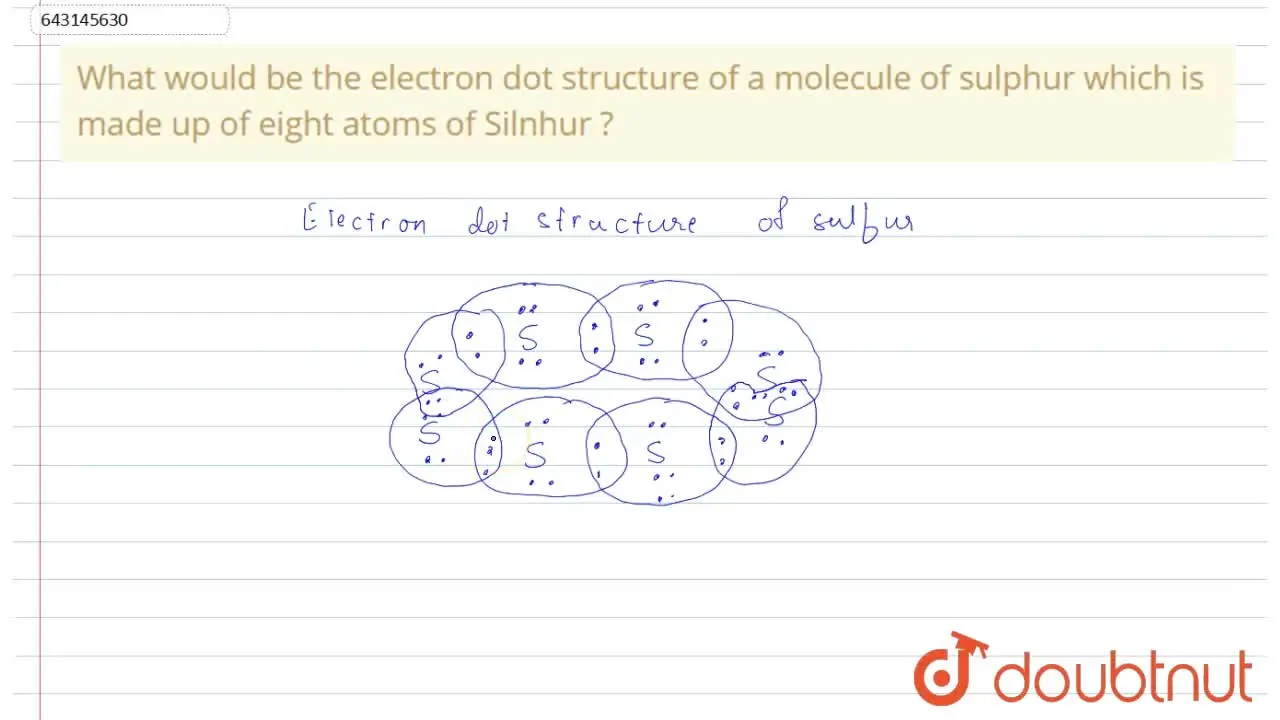 643145630
What would be the electron dot structure of a molecule of sulphur which is
made up of eight atoms of Silnhur ?
Electron dot structure of sulfur
S S
S S
S S S S
doubtnut